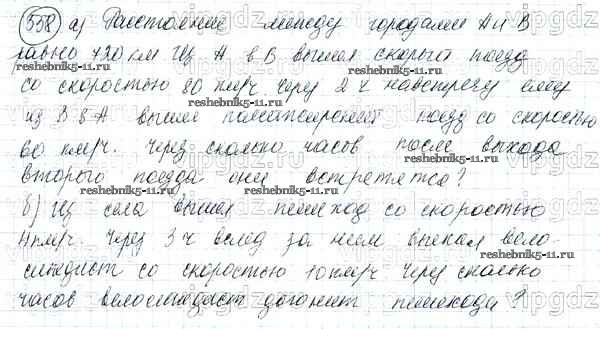 558 а) Расстояние между городами А и В
равно 720 км Из А в В вышел скорый поезд
со скоростью 80 км/ч. Через 2 ч навстречу ему
из В в А вышел пассажирский поезд со скоростью
60 км/ч. Через сколько часов после выхода
второго поезда они встретятся?
б) Из села вышел пешеход со скоростью
4 км/ч. Через 3 ч вслед за ним выехал вело-
сипедист со скоростью 10 км/ч Через сколько
часов велосипедист догонит пешехода?